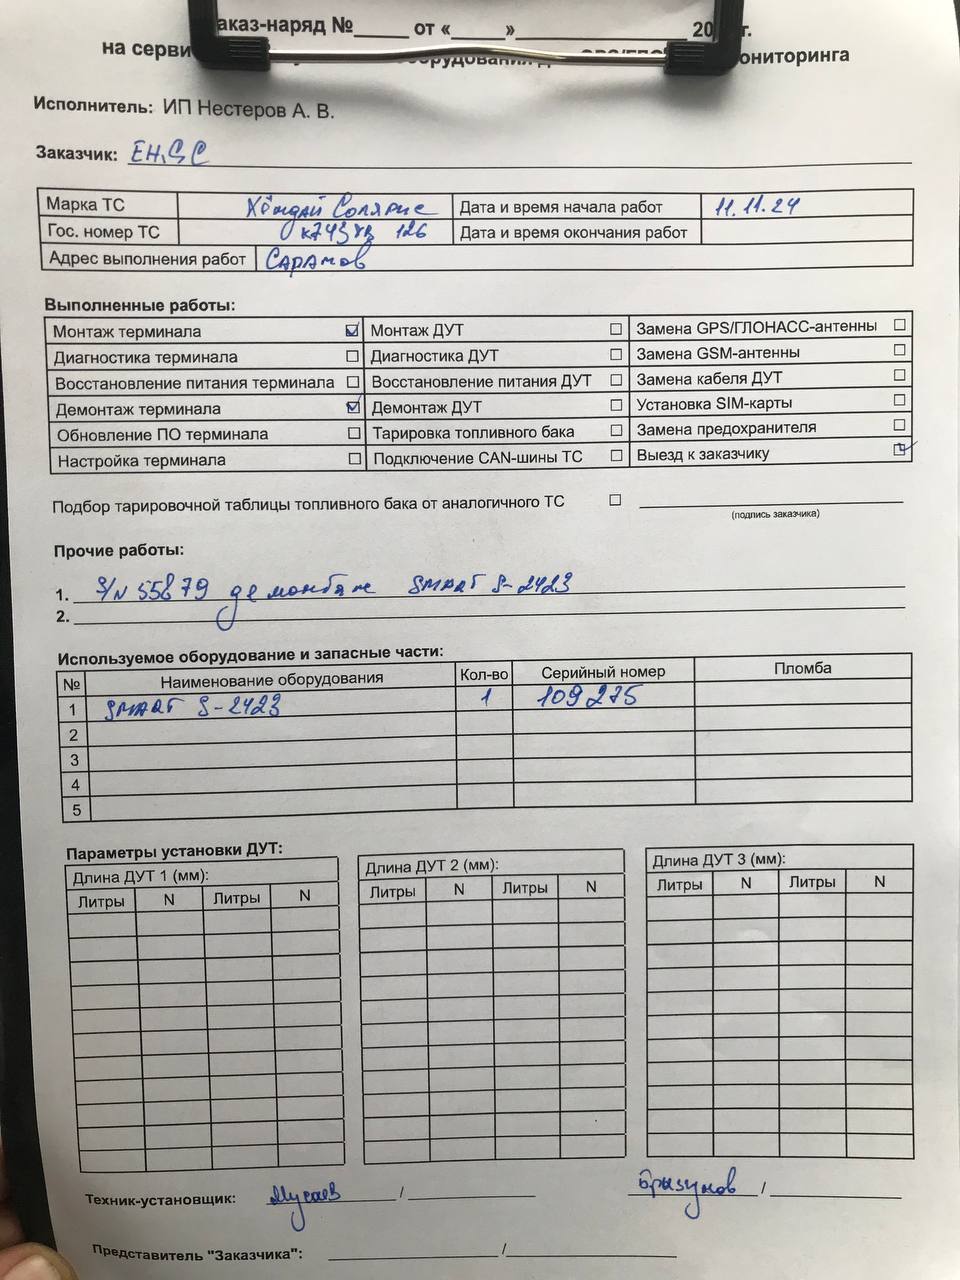 аказ-наряд №_____ от «_____»_______________ 20 г.
на серви ониторинга
Исполнитель: ИП Нестеров А. В.
Заказчик: ЕНДС
Марка ТС Хёндай Солярис Дата и время начала работ 11.11.24
Гос. номер ТС 126 Дата и время окончания работ
Адрес выполнения работ Саратов
Выполненные работы:
Монтаж терминала ☑ Монтаж ДУТ ☐ Замена GPS/ГЛОНАСС-антенны ☐
Диагностика терминала ☐ Диагностика ДУТ ☐ Замена GSM-антенны ☐
Восстановление питания терминала ☐ Восстановление питания ДУТ ☐ Замена кабеля ДУТ ☐
Демонтаж терминала ☑ Демонтаж ДУТ ☐ Установка SIM-карты ☐
Обновление ПО терминала ☐ Тарировка топливного бака ☐ Замена предохранителя ☐
Настройка терминала ☐ Подключение CAN-шины ТС ☐ Выезд к заказчику ☑
Подбор тарировочной таблицы топливного бака от аналогичного ТС ☐
(подпись заказчика)
Прочие работы:
1. S/N 55879 демонтаж SMART S-2423
2.
Используемое оборудование и запасные части:
№ Наименование оборудования Кол-во Серийный номер Пломба
1 SMART S-2423 1 109275
2
3
4
5
Параметры установки ДУТ:
Длина ДУТ 1 (мм): Длина ДУТ 2 (мм): Длина ДУТ 3 (мм):
Литры N Литры N Литры N Литры N Литры N Литры N
Техник-установщик: Мусаев / Брызунов /
Представитель "Заказчика": /